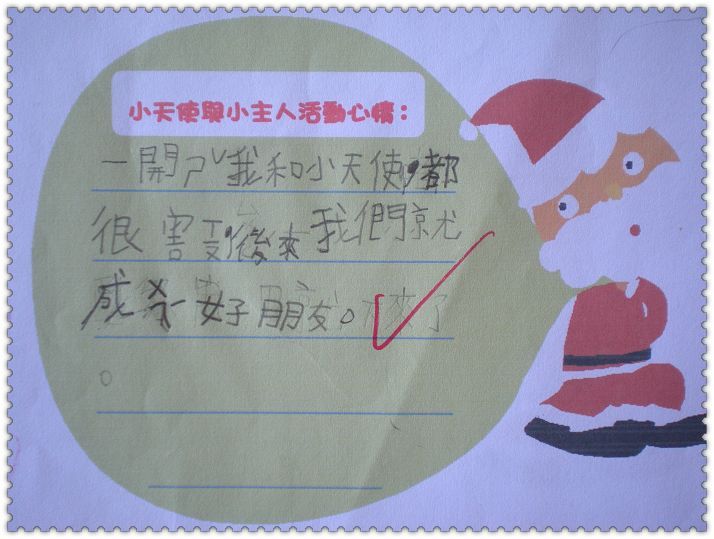 小天使與小主人活動心情：
一開ㄕˇ我和小天使，都
很害ㄒㄧㄡ，後來我們就
成好朋友。
。